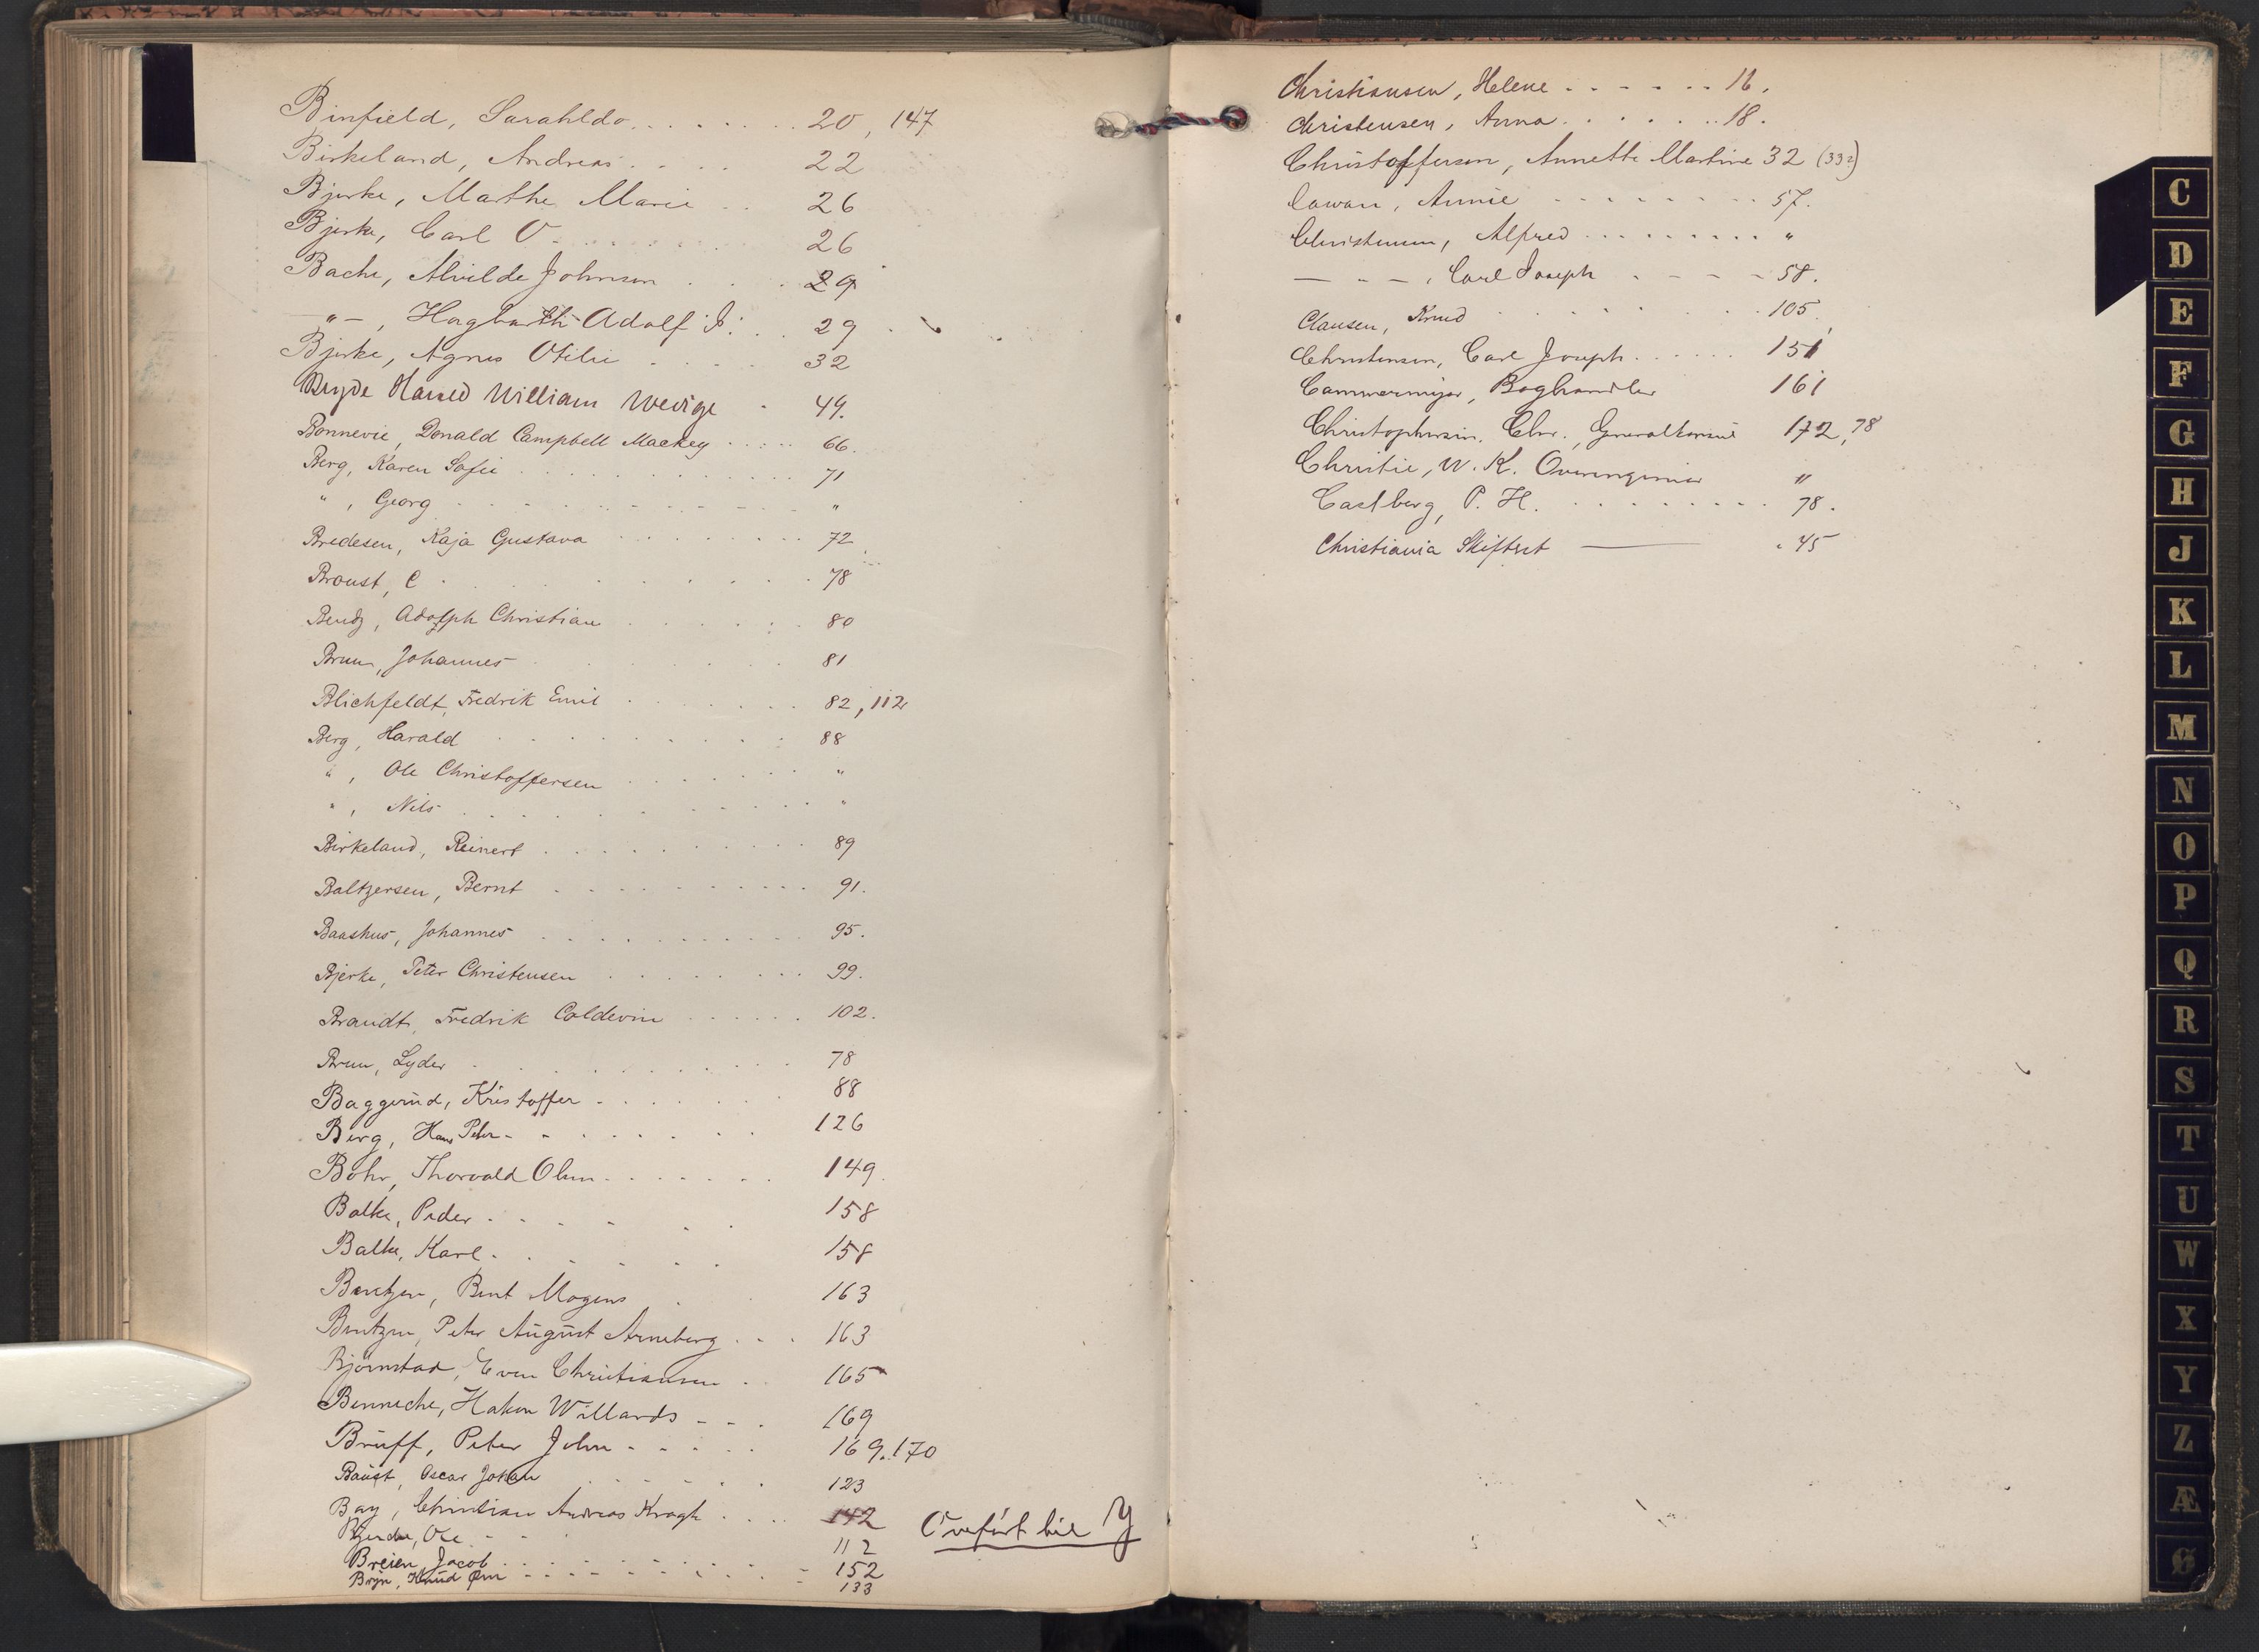 Binfield, Sarahlda . . . . . . 20, 147
Birkeland, Andreas . . . . 22
Bjerke, Marthe Marie . . 26
Bjerke, Carl O. . . . . . . 26
Bache, Alvilde Johnsen . . . 29
— " —, Hagbarth Adolf J. . . 29
Bjerke, Agnes Otilie . . . . 32
Bryde Harred William Wedige . 49.
Bonnevie, Donald Campbell Mackey . . . . 66.
Berg, Karen Sofie . . . . . . . . . . 71
" , Georg . . . . . . . . . . "
Bredesen, Kaja Gustava . . . . . . . . 72
Broust, C . . . . . . . . . 78
Bendz, Adolph Christian . . . . . 80
Brun, Johannes . . . . . . 81
Blichfeldt, Fredrik Emil . . . . . . 82, 112
Berg, Harald . . . . . . . . 88
" , Ole Christoffersen . . . . . . "
" , Nils . . . . . . . . . "
Birkeland, Reinert . . . . . . . . . 89
Baltzersen, Bernt . . . . . . . . . 91.
Baashus, Johannes . . . . . . . . . 95.
Bjerke, Peter Christensen . . . . . . . 99.
Brandt, Fredrik Coldevin . . . . . . 102.
Brun, Lyder . . . . . . . . . 78
Baggerud, Kristoffer . . . . . . . 88
Berg, Hans Peter - - . . . . . . 126
Bohr, Thorvald Olsen . . . . . . 149.
Balke, Peder . . . . . . 158
Balke, Karl . . . . . . 158
Bentzen, Bent Mogens . . 163
Bentzen, Peter August Arneberg . . . 163
Bjørnstad, Even Christiansen . 165
Benneche, Hakon Willards - - . 169
Brüff, Peter John - . . . . 169. 170
Baust, Oscar Johan . . . . . . 123
Bay, Christian Andreas Kragh . . . . 142
Ole - - . 112
Breien, Jacob . . . . . . . . . 152
Bryn, Knud - - - . . . . . - 133
Overført til Y
Christiansen, Helene . . . . . . 16.
Christensen, Anna . . . . . . . 18.
Christofferson, Annette Martine 32 (332)
Cowan, Annie - - - - - - - - 57.
Christensen, Alfred . . . . . . . . . "
— - —, Carl Joseph . - - - 58.
Clausen, Knud . . . . . . . 105.
Christensen, Carl Joseph . . . . . . 151
Cammermeyer, Boghandler 161
Christophersen, Chr., Generalkonsul 172, 78
Christie, W. K. Overingeniør "
Castberg, P. H. . . . . . . . . . 78.
Christiania Skifteret ——— " 45
C
D
E
F
G
H
J
K
L
M
N
O
P
Q
R
S
T
U
W
X
Y
Z
Æ
Ø